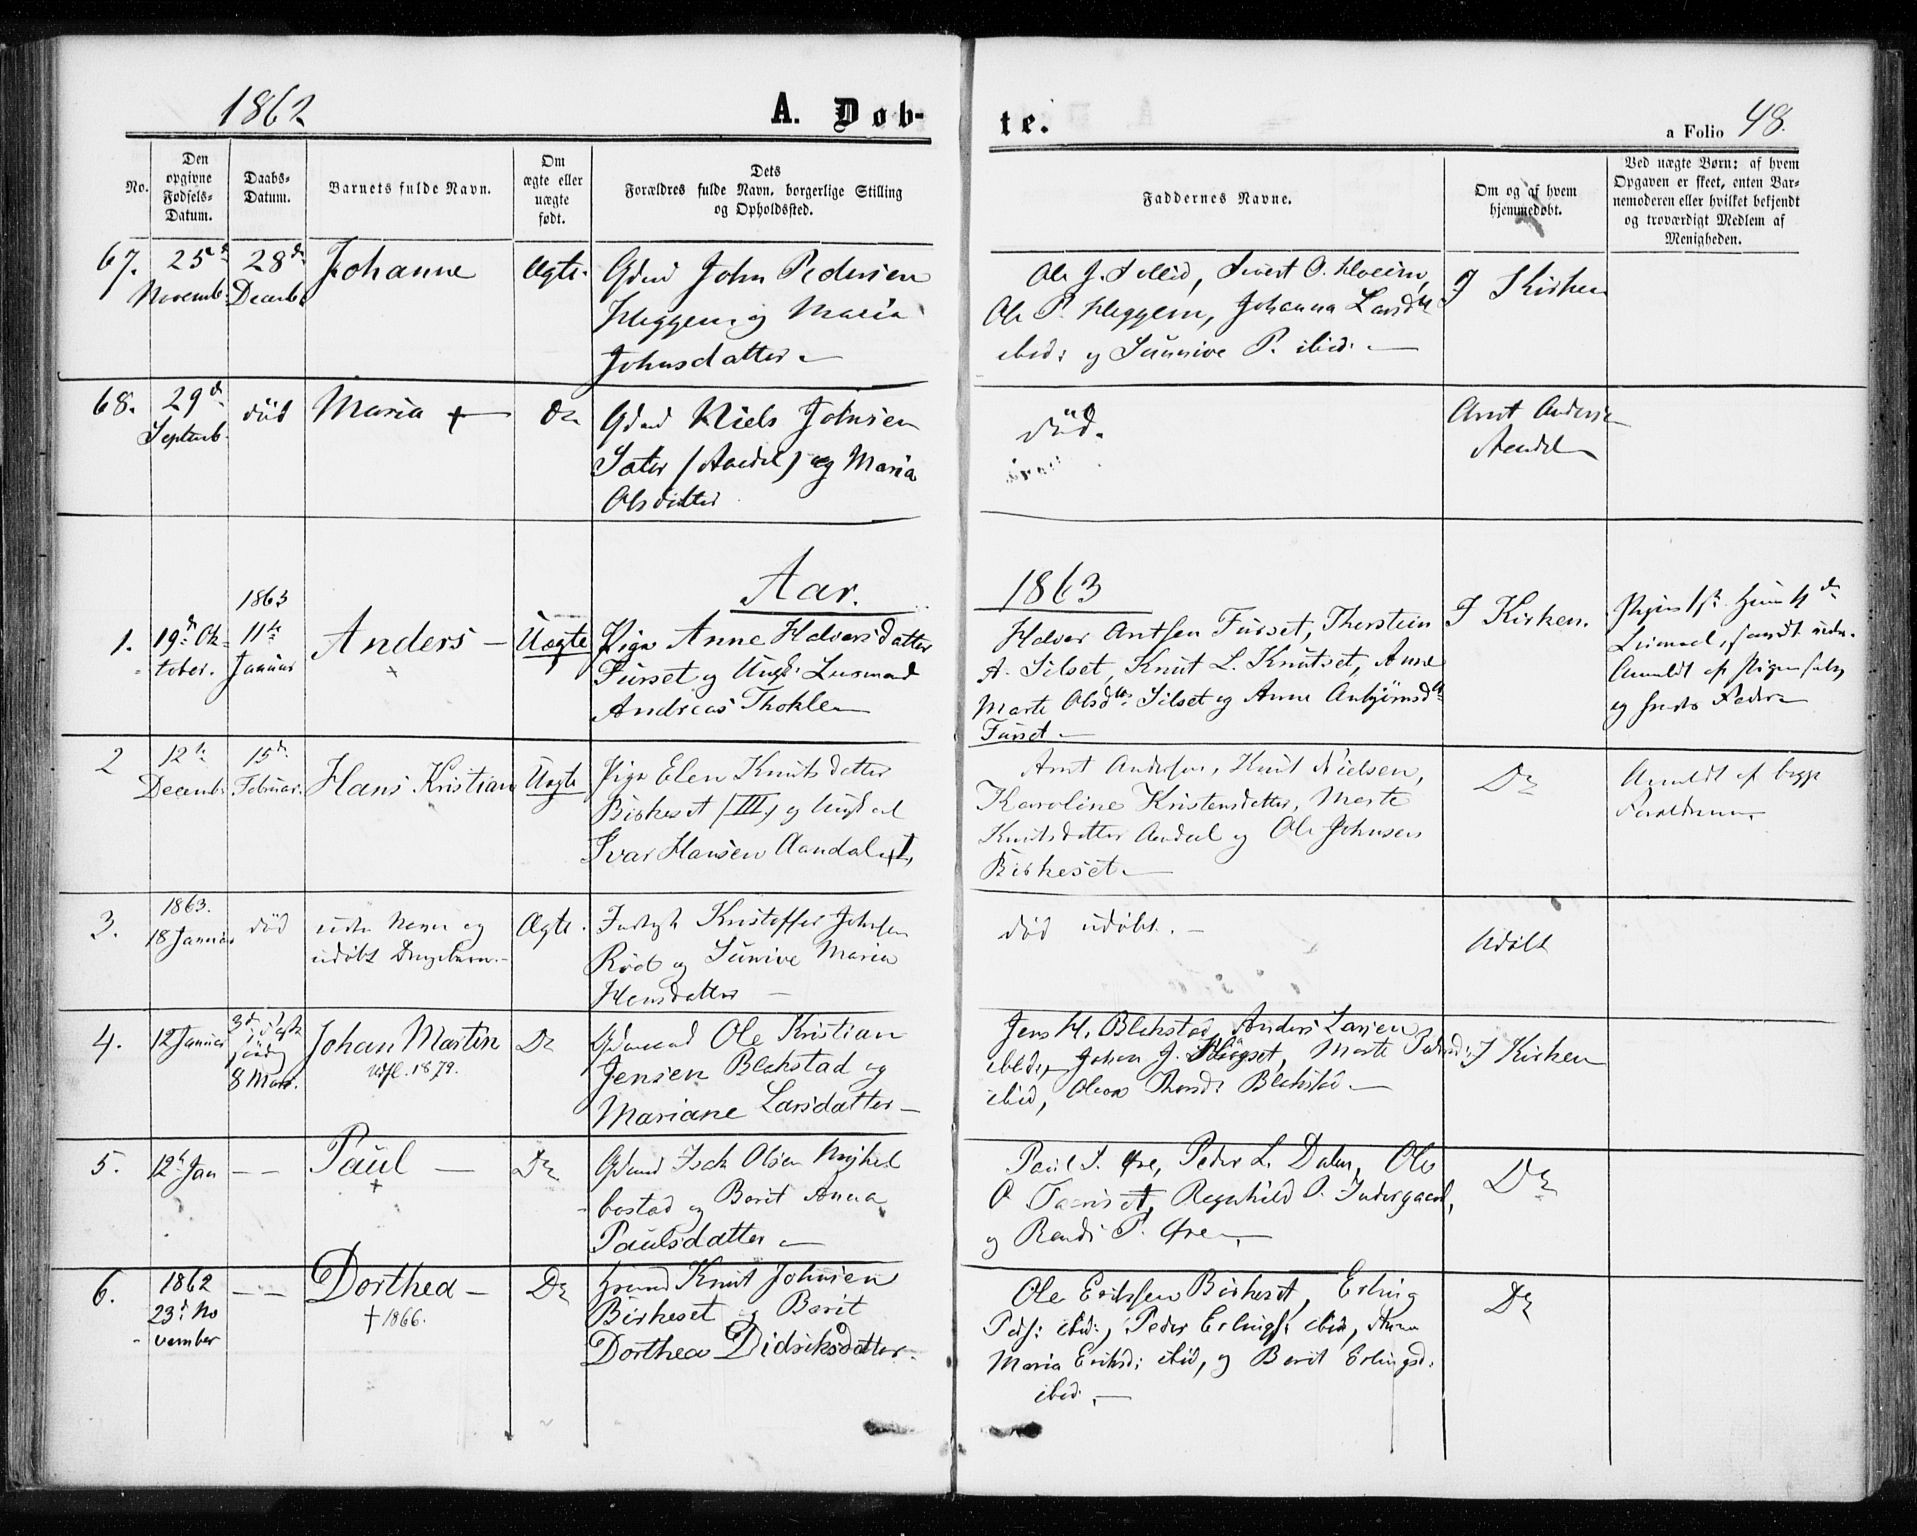 1862
A. Døb-
te.
a Folio 48.
No.
Den
opgivne
Fødsels-
Datum.
Daabs-
Datum.
Barnets fulde Navn.
Om
ægte eller
uægte
født.
Dets
Forældres fulde Navn, borgerlige Stilling
og Opholdssted.
Faddernes Navne.
Om og af hvem
hjemmedøbt.
Ved uægte Børn: af hvem
Opgaven er skeet, enten Bar-
nemoderen eller hvilket bekjendt
og troværdigt Medlem af
Menigheden.
67.
25d
Novemb.
28d
Decemb.
Johanne
Ægte.
Gdmd John Pedersen
Heggem og Maria
Johnsdatter
Ole J. Sollid, Sivert O. Hoeim,
Ole P. Heggem, Johanna Larsd.
ibid: og Sunnive P. ibid.
I Kirken
68.
29d
Septemb.
død
Maria +
Do
Gdmd Niels Johnsen
Sæter (Aandal) og Maria
Olsdatter
død.
Arnt Anders
Aandal
Aar.
1863
1.
19d Ok-
tober.
1863
11te
Januar
Anders
+
Uægte
Pige Anne Halvorsdatter
Furset og Ungk. Lusmand
Andreas Thokle
Halvor Antsen Furset, Thorstein
A. Silset, Knut L. Knutset, Anne
Marte Olsd. Silset og Anne Anbjørnsd.
Furset
I Kirken.
Pigens 1st Hans 4d
Leiermaal,
Anmeldt af Pigen selv
og hendes Fader
2
12te
Decemb.
15d
Februar.
Hans Kristian
Uægte
Pige Elen Knutsdatter
Birkeset (III) og Ungkarl
Ivar Hansen Aandal I,
Arnt Andersen, Knut Nielsen,
Karoline Kristensdatter, Marte
Knutsdatter Aandal og Ole Johnsen
Birkeset
Do
Anmeldt af begge
Forældrene
3.
1863.
18 Januar
død
uden Navn og
udøbt Drengebarn.
Ægte.
Indst. Kristoffer Johnsen
Rød og Sunnive Maria
Hansdatter
død udøbt.
Udøbt
4.
12 Januar
8 Mars.
Johan Martin
Udfl. 1879.
Do
Gdmand Ole Kristian
Jensen Blekstad og
Mariane Larsdatter
Jens H. Blekstad, Anders Larsen
ibid, Johan J. Høgset, Marte Pedersd.
ibid, Oleva Thorsd. Blekstad
I Kirken
5.
12te Jan
Paul
+
Do
Gdmd Isak Olsen Myhel
bostad og Berit Anna
Paulsdatter
Paul I. Øre, Peder L. Dalen, Ole
O. Torriset, Regnhild P. Indergaard,
og Randi P. Øre
Do
6.
1862
23d No
vember
Dorthea
† 1866.
Do
Knut Johnsen
Birkeset og Berit
Dorthea Didriksdatter.
Ole Eriksen Birkeset, Erling
Peds: ibid, Peder Erlings: ibid, Anna
Maria Eriksd: ibid, og Berit Erlingsd.
ibid.
Do